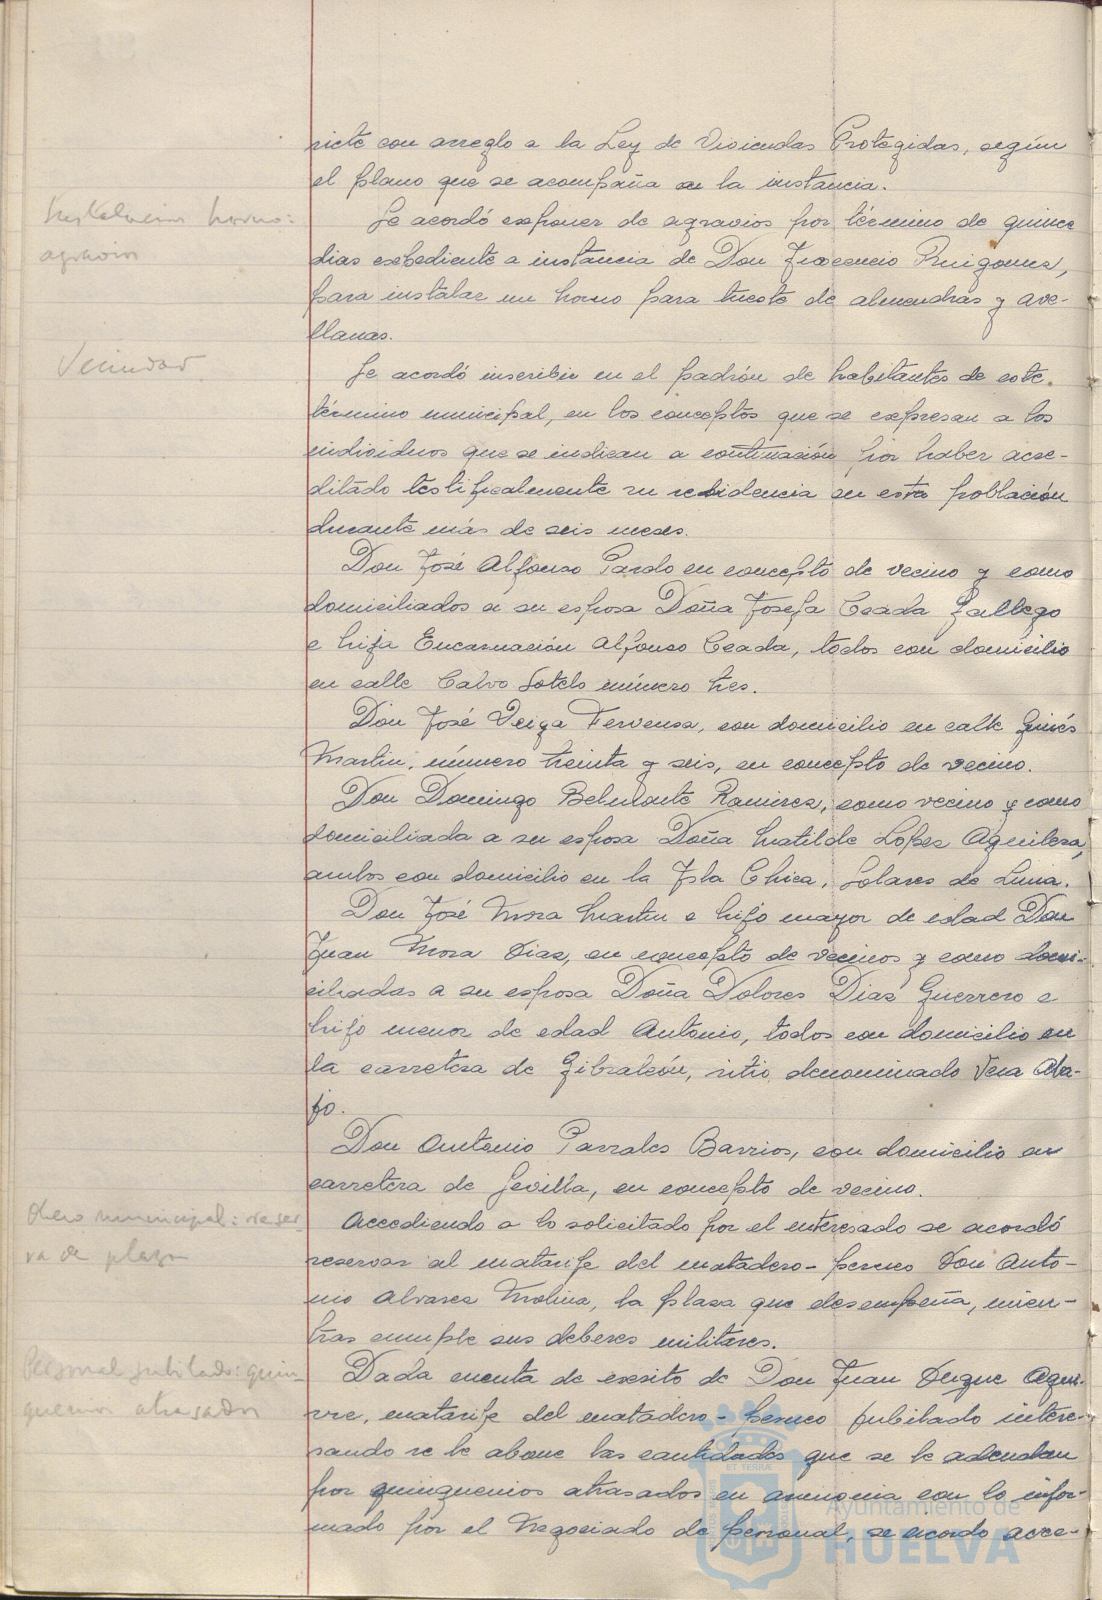 siete con arreglo a la Ley de Viviendas Protegidas, según
el plano que se acompaña en la instancia.
Instalación horno:
agravios
Se acordó exponer de agravios por término de quince
dias expediente a instancia de Don Inocencio Ruigomez,
para instalar un horno para tueste de almendras y ave-
llanas.
Vecindad
Se acordó inscribir en el padrón de habitantes de este
término municipal, en los conceptos que se expresan a los
individuos que se indican a continuación por haber acre-
ditado testificalmente su residencia en esta población
durante más de seis meses.
Don José Alfonso Pardo en concepto de vecino y como
domiciliados a su esposa Doña Josefa Ceada Gallego
e hija Encarnación Alfonso Ceada, todos con domicilio
en calle Calvo Sotelo número tres.
Don José Veiga Fervensa, con domicilio en calle Ginés
Martin, número treinta y seis, en concepto de vecino.
Don Domingo Ramirez, como vecino y como
domiciliada a su esposa Doña Matilde Lopez Aguilera,
ambos con domicilio en la Isla Chica, Solares de Luna.
Don José Mora Martin e hijo mayor de edad Don
Juan Mora Diaz, en concepto de vecinos y como domi-
ciliadas a su esposa Doña Dolores Dias Guerrero e
hijo menor de edad Antonio, todos con domicilio en
la carretera de Gibraleón, sitio denominado Vera Aba-
jo.
Don Antonio Parrales Barrios, con domicilio en
carretera de Sevilla, en concepto de vecino.
Obrero municipal: reser-
va de plaza
Accediendo a lo solicitado por el interesado se acordó
reservar al matarife del matadero- Don Anto-
nio Alvarez Molina, la plaza que desempeña, mien-
tras cumple sus deberes militares.
Personal jubilado: quin-
quenios atrasados
Dada cuenta de escrito de Don Juan Duque Agui-
rre, matarife del matadero- jubilado intere-
sando se le abone las cantidades que se le adeudan
por quinquenios atrasados en armonia con lo infor-
mado por el Negociado de personal, se acordo acce-
Ayuntamiento de
HUELVA